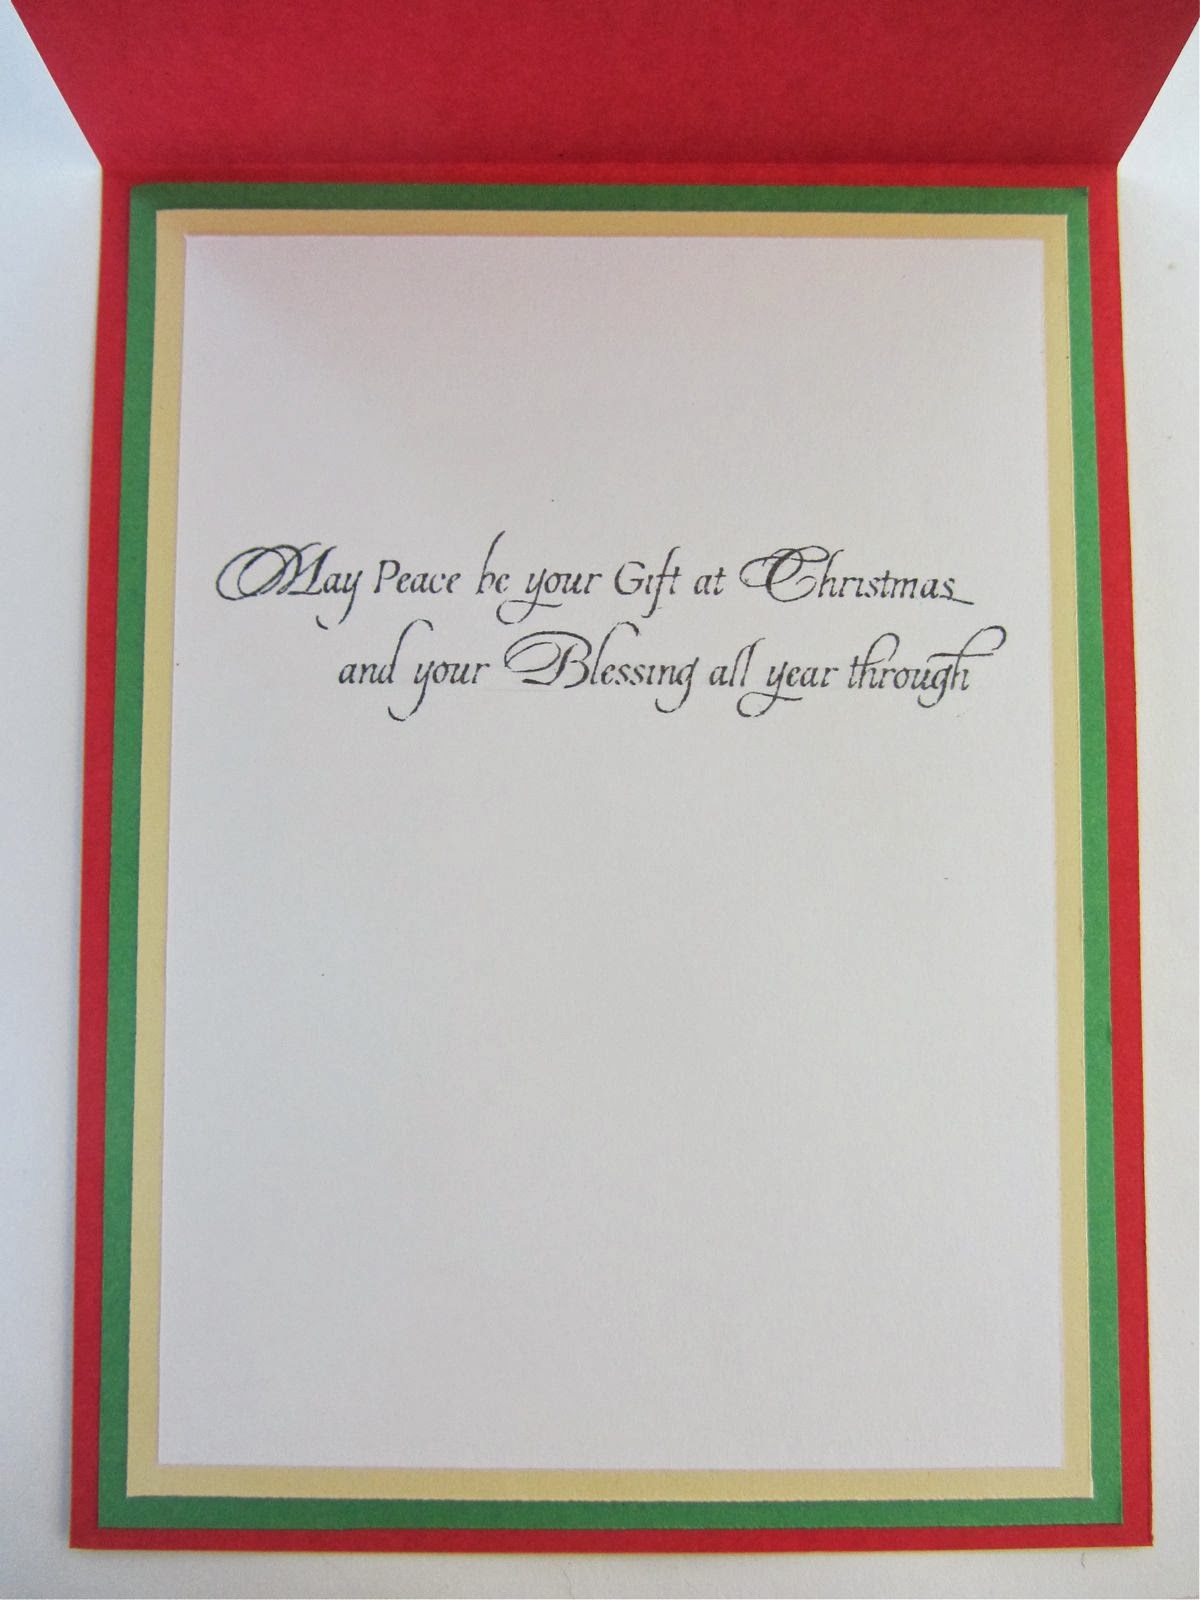 May Peace be your Gift at Christmas
and your Blessing all year through